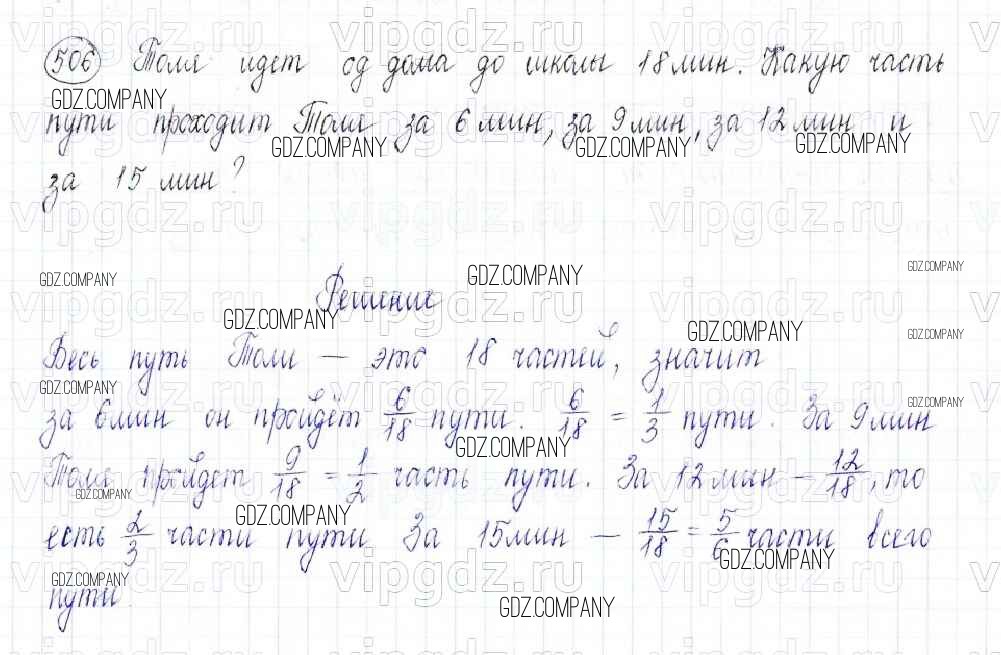 506 Толя идет од дома до школы 18 мин. Какую часть
пути проходит Толя за 6 мин, за 9 мин, за 12 мин и
за 15 мин?
Решение
Весь путь Толи — это 18 частей, значит
за 6 мин он пройдёт 6/18 пути. 6/18 = 1/3 пути. За 9 мин
Толя пройдет 9/18 = 1/2 часть пути. За 12 мин — 12/18, то
есть 2/3 части пути За 15 мин — 15/18 = 5/6 части всего
пути.
vipgdz.ru
GDZ.COMPANY